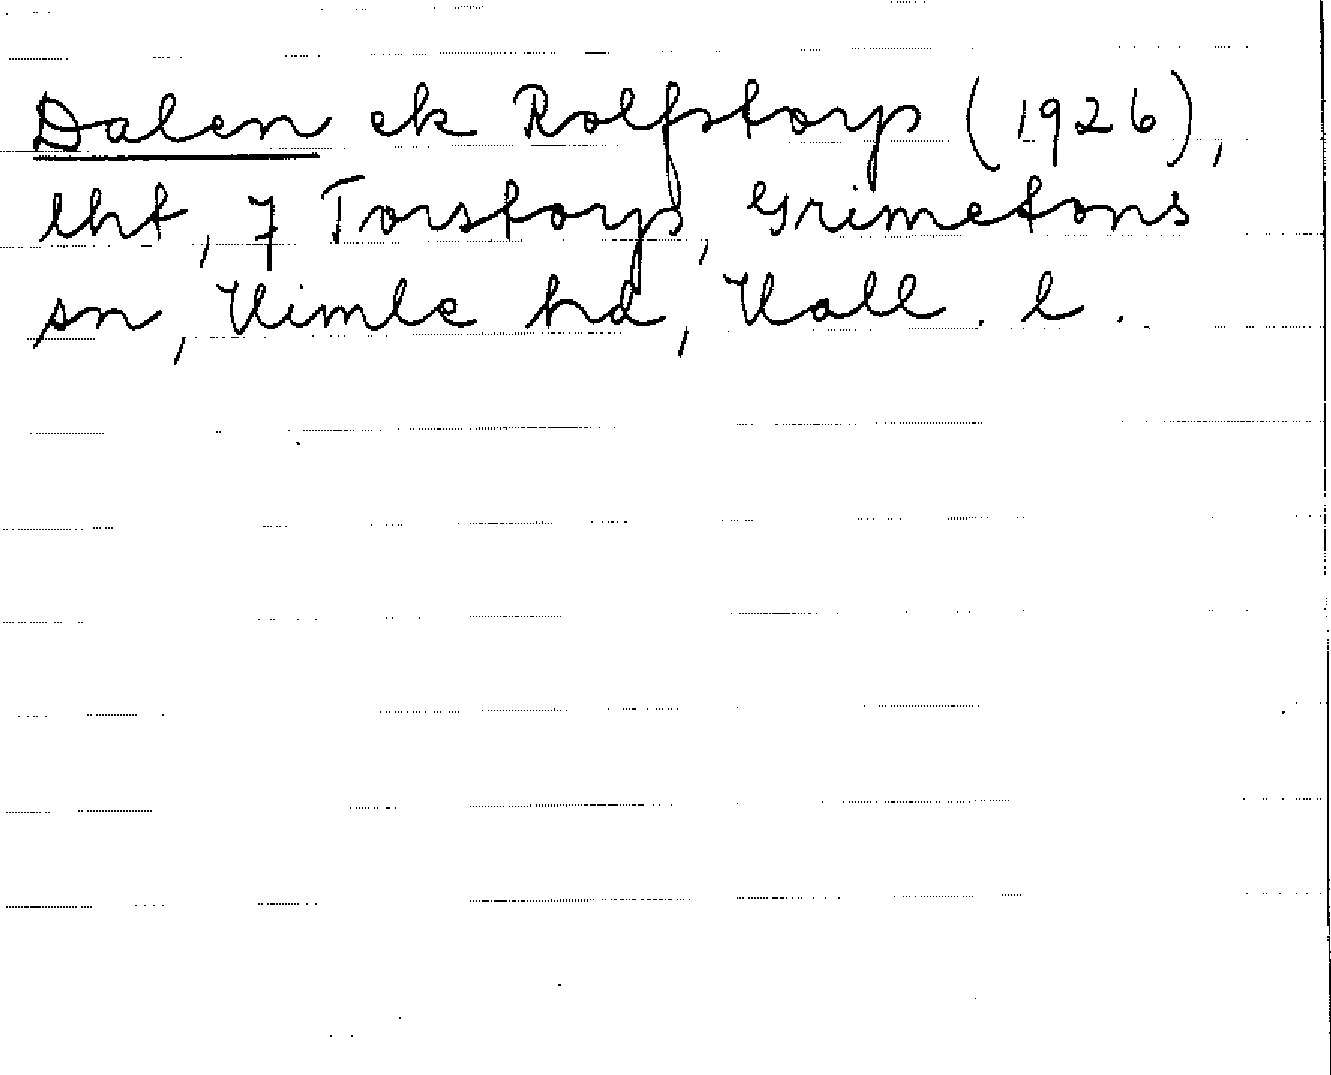 Dalen ek Rolfstorp (1926),
lht, 7 Torstorp, Grimetons
sn, Himle hd, Hall. l.